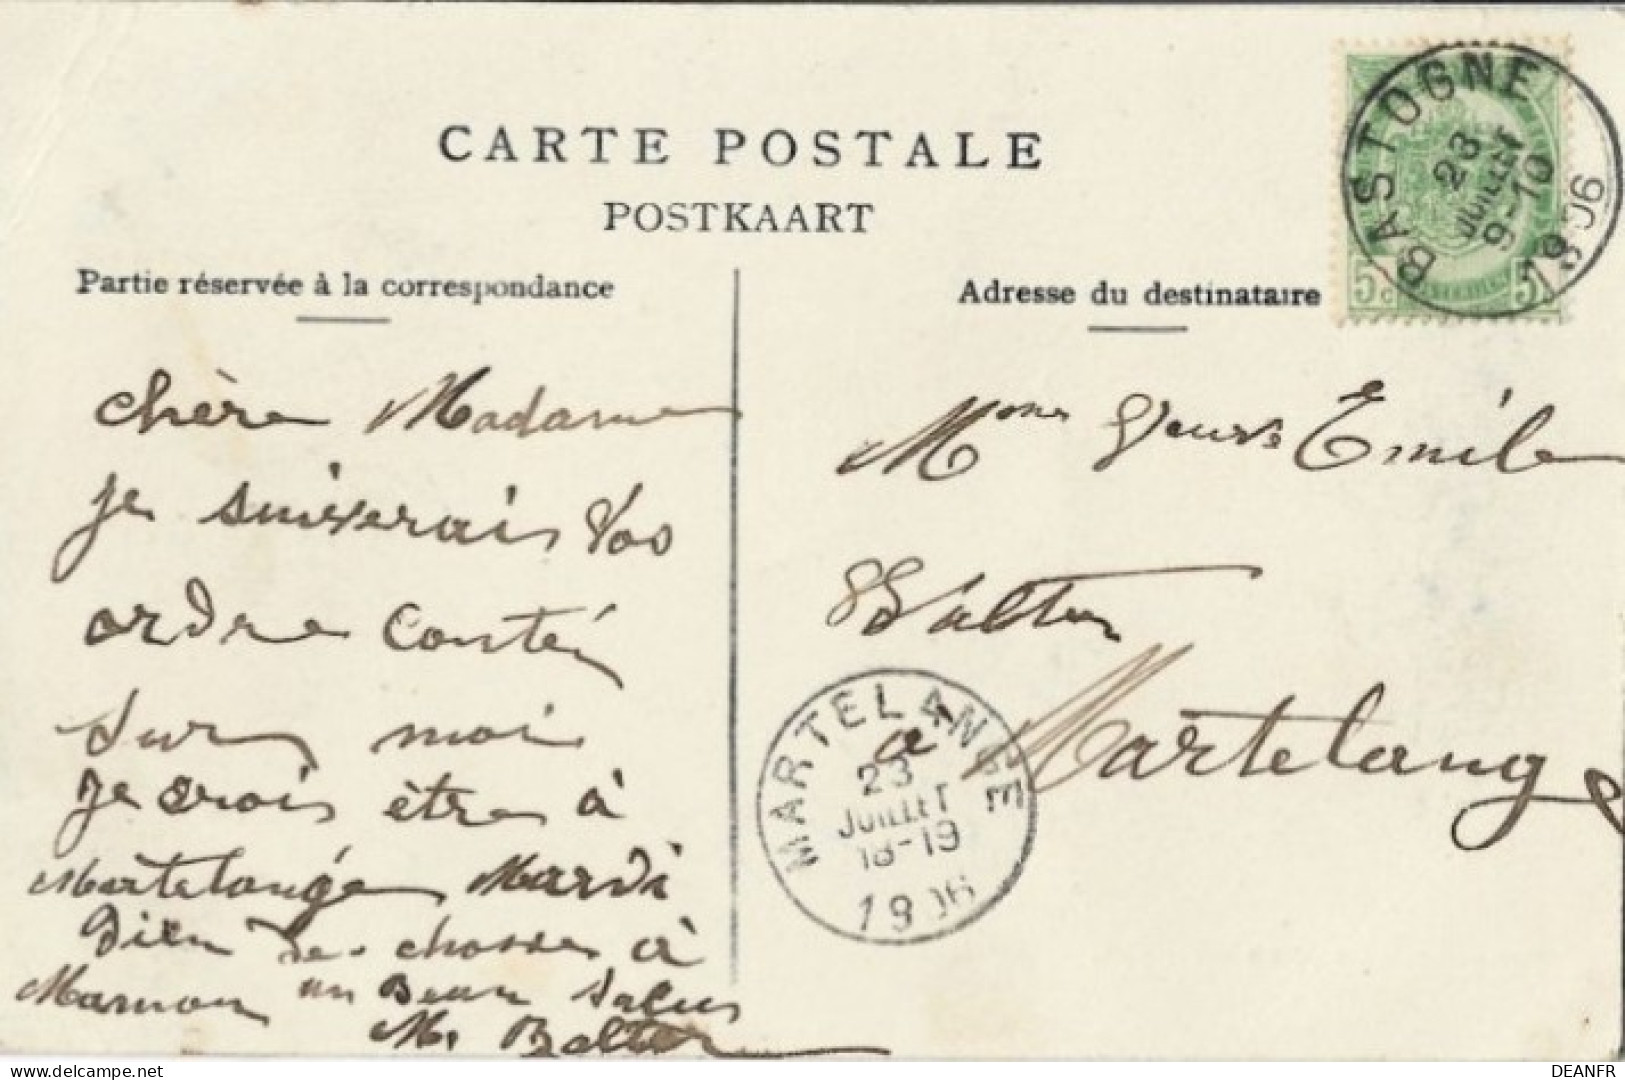 CARTE POSTALE
POSTKAART
Partie réservée à la correspondance
Adresse du destinataire
BASTOGNE
23
JUILLET
9-10
1906
5c 5
chère Madame
je suiverais vos
ordre conté
sur moi
je crois être à
Martelange Mardi
bien de chosse à
Maman un Beau salus
M. Balter
Mme Veuve Emile
Balter
à Martelange
MARTELANGE
23
JUILLET
18-19
1906
DEANFR